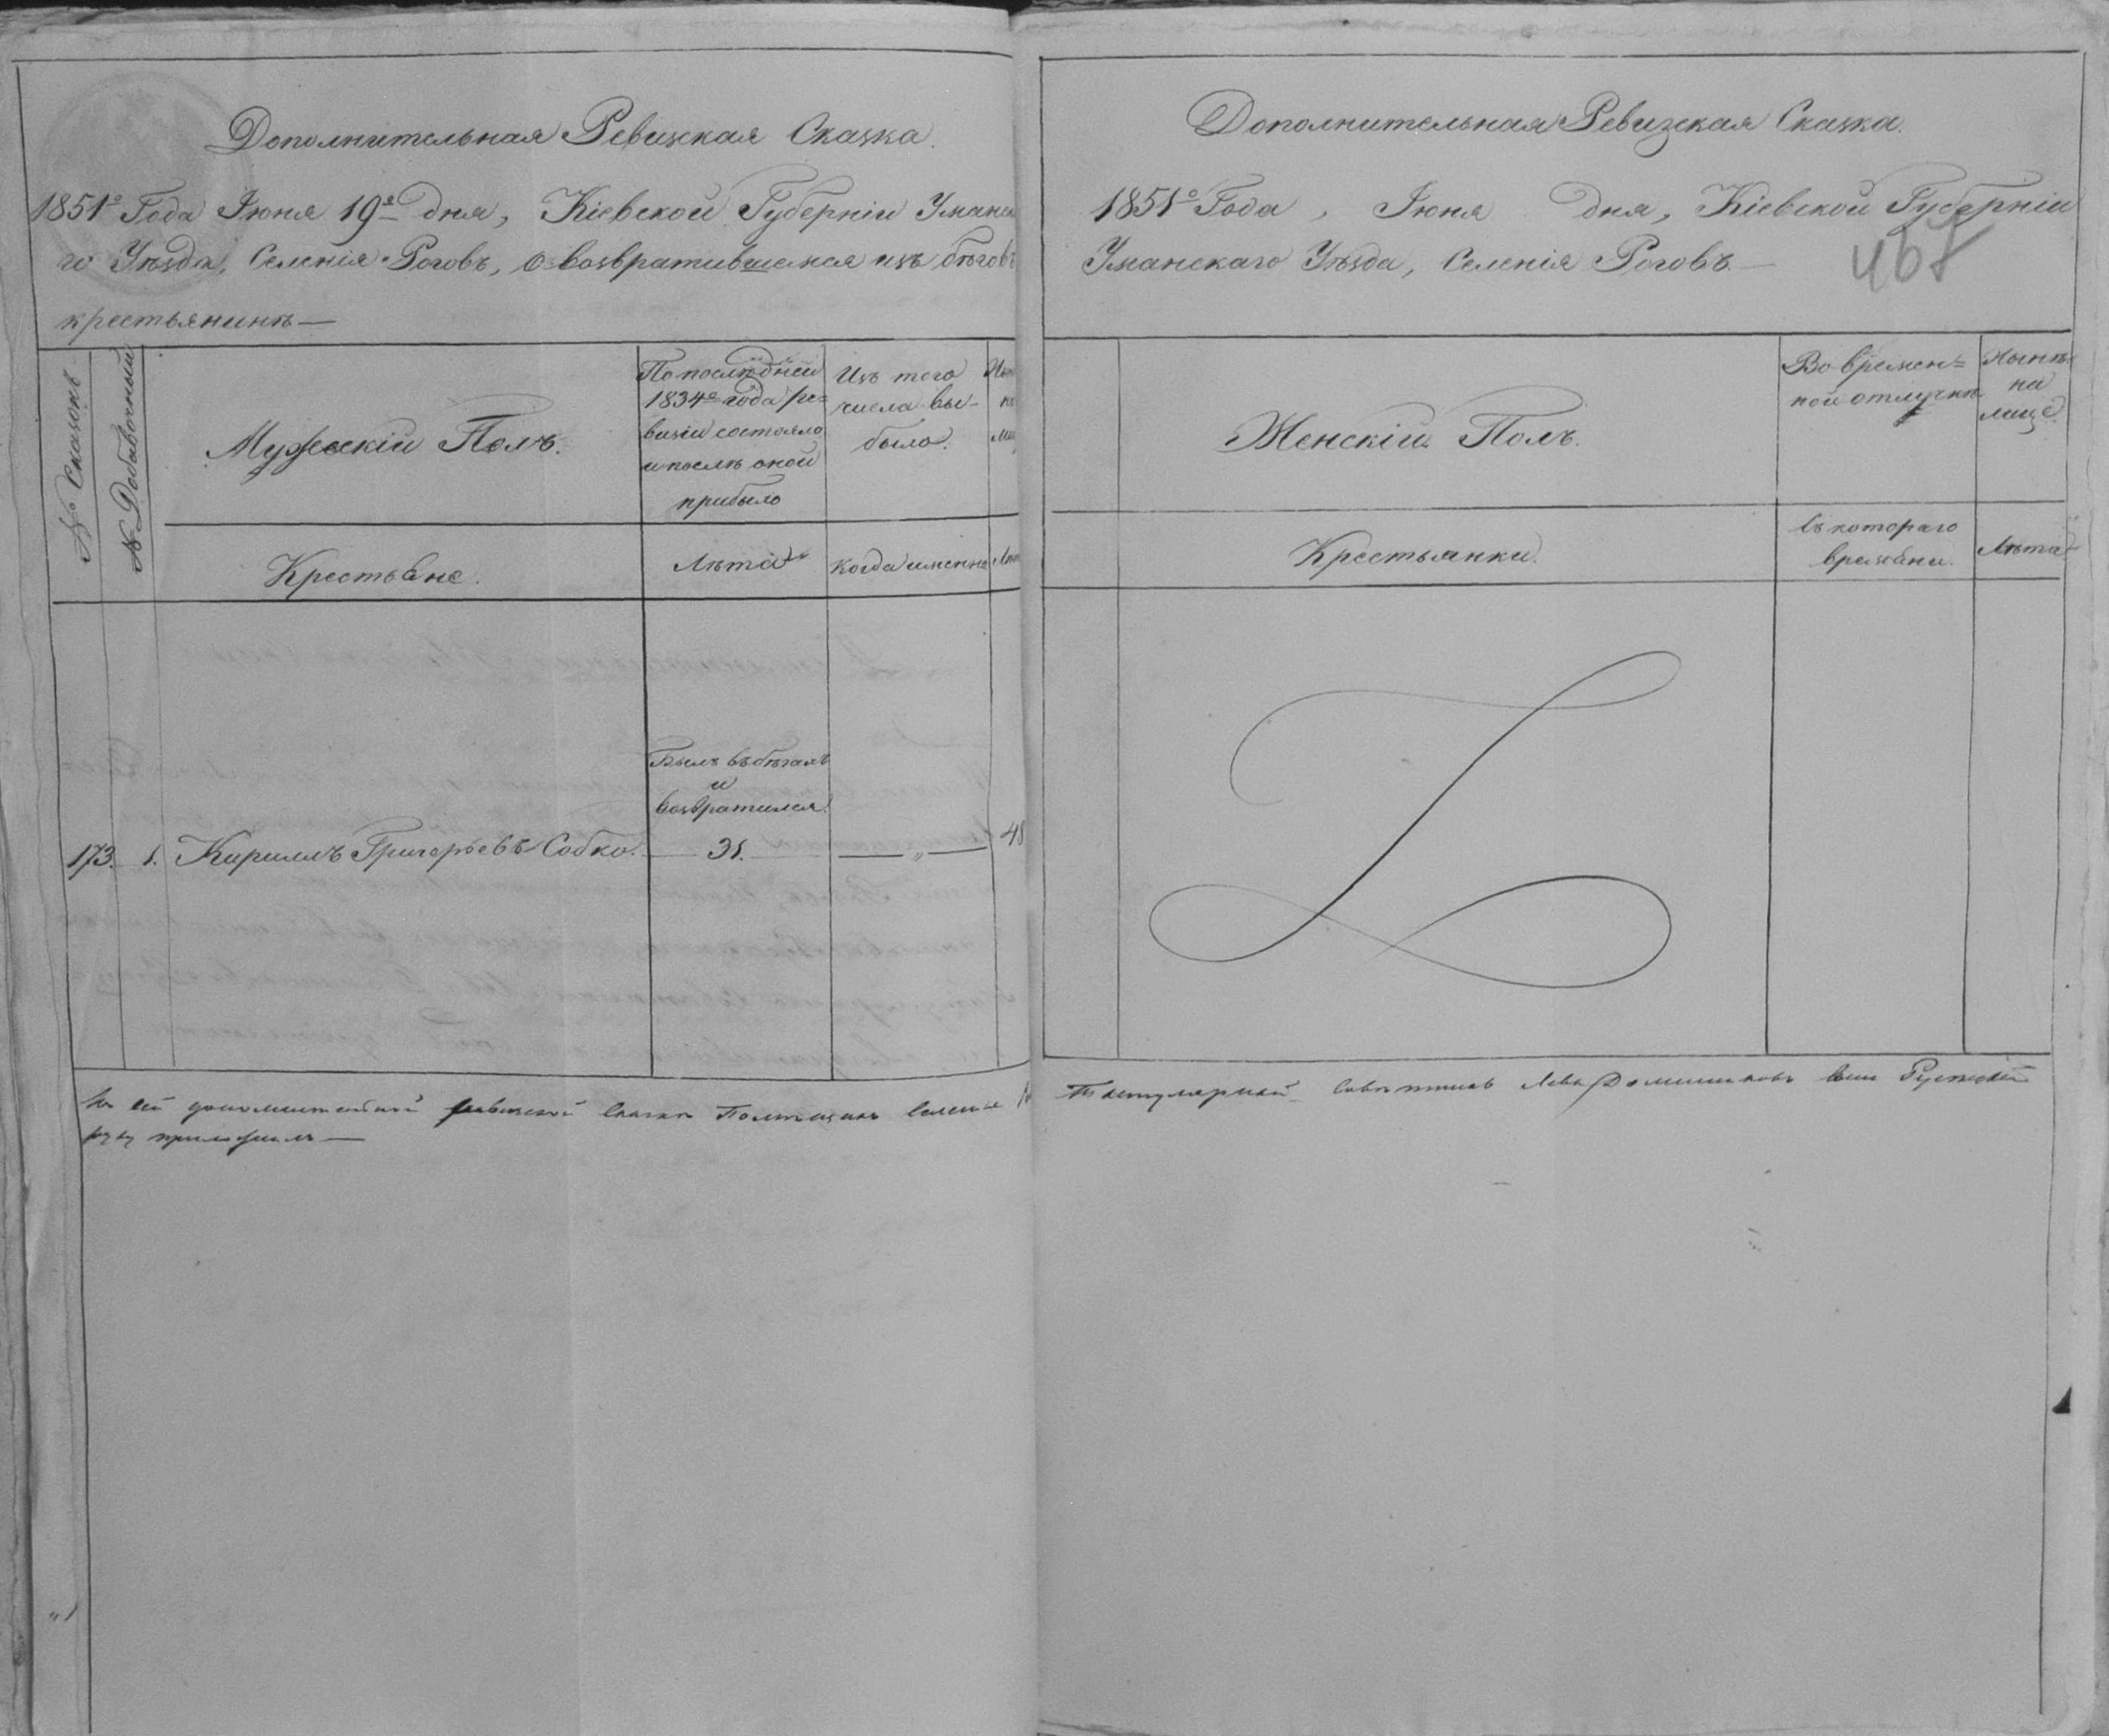 Дополнительная Ревизская Сказка.
1851го Года Іюня 19го дня, Кіевской Губерніи Уманска
го Уѣзда, Селенія Роговъ, о возвратившемся изъ бѣговъ
крестьянинѣ —
№ Сказокъ
№ Добавочный
Мужескій Полъ.
По послѣдней
1834го года ре=
визіи состояло
и послѣ оной
прибыло
Изъ того
числа вы-
было.
Крестьяне.
Лѣта
Когда именно
Былъ въ бѣгахъ
и
возвратился.
173. 1. Кириллъ Григорьевъ Собко. — 31. — — „ — 48
Къ сей дополнительной ревизской сказке Помѣщикъ селенія
руку приложилъ —
Дополнительная Ревизская Сказка.
1851го Года, Іюня дня, Кіевской Губерніи
Уманскаго Уѣзда, Селенія Роговъ. —
467
Женскій Полъ.
Во времен=
ной отлучкѣ
Нынѣ
на
лице.
Крестьянки.
Съ котораго
времени.
Лѣта
Титулярный Совѣтникъ Левъ Доминиковъ сынъ